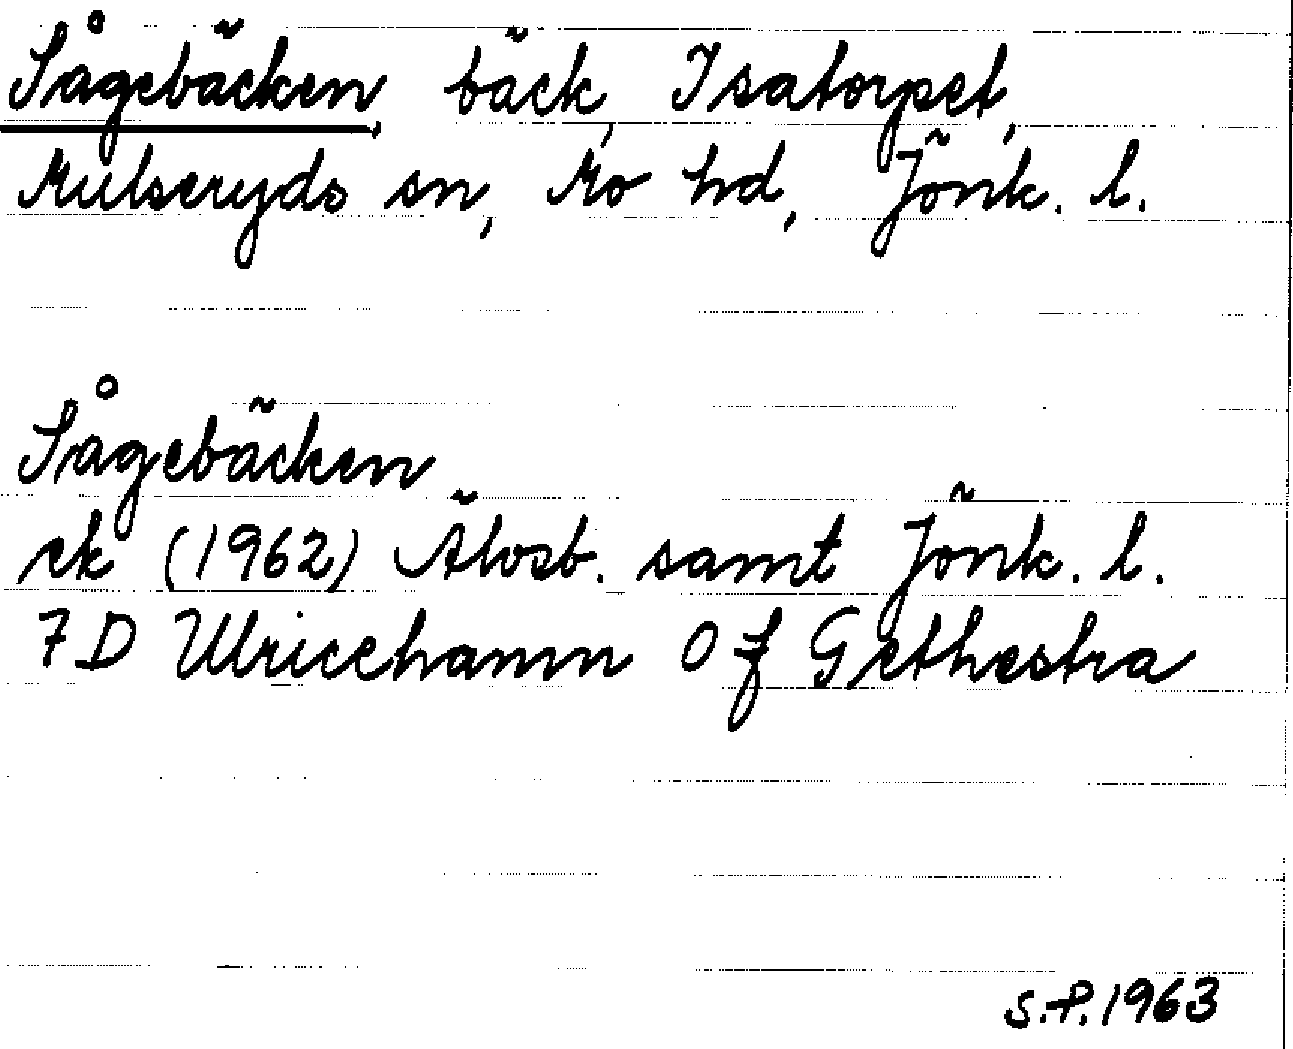 Sågebäcken, bäck, Isatorpet,
Mulseryds sn, Mo hd, Jönk. l.
Sågebäcken
ek (1962) Älvsb. samt Jönk. l.
7 D Ulricehamn 0 f Grethestra
S.P. 1963